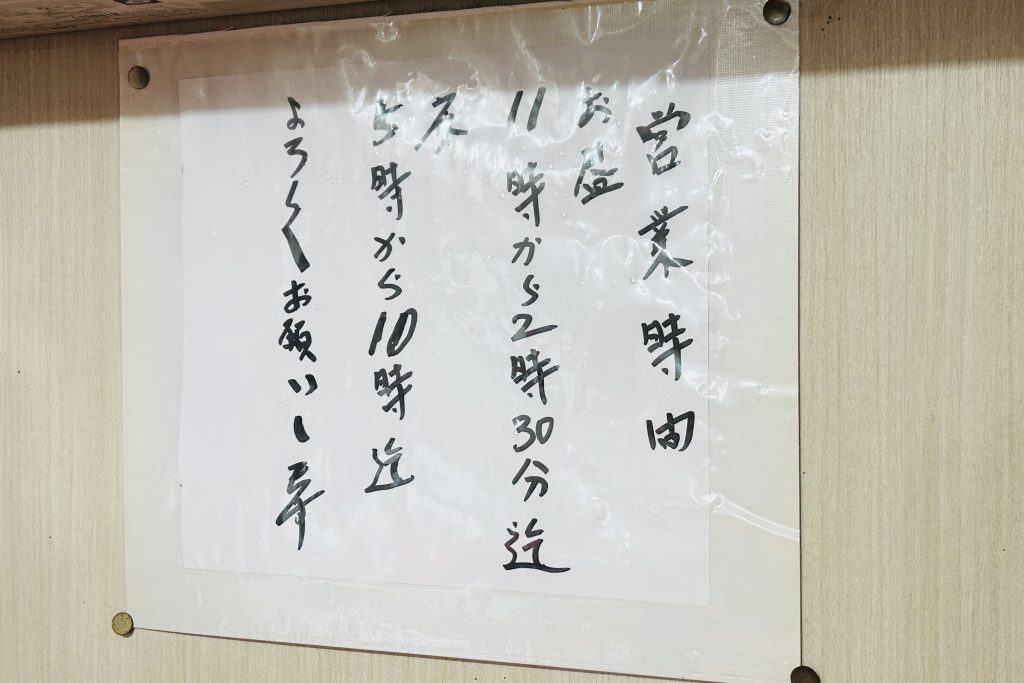 営業時間
お昼
11時から2時30分迄
夜
5時から10時迄
よろしくお願いし〼